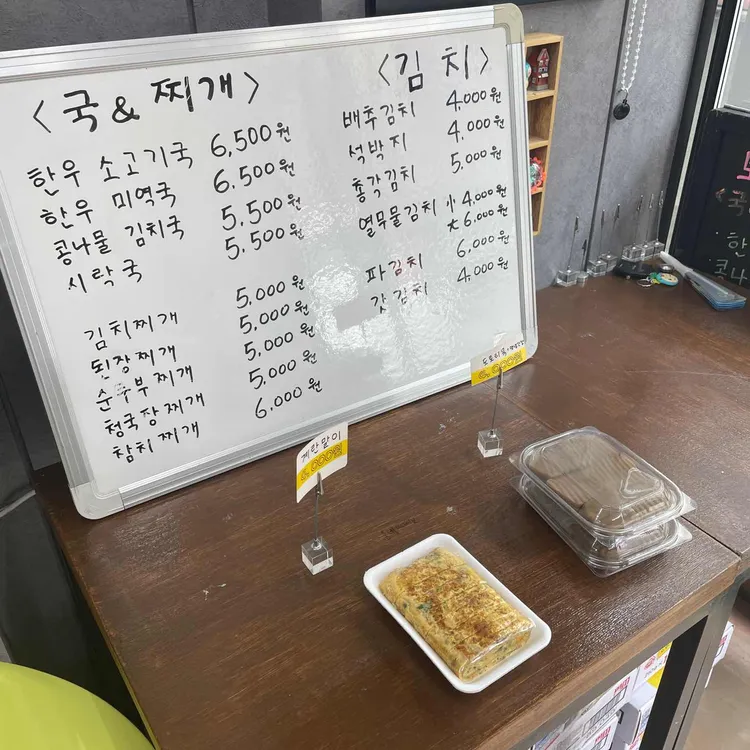 <국 & 찌개>
한우 소고기국 6,500원
한우 미역국 6,500원
콩나물 김치국 5,500원
시락국 5,500원
김치찌개 5,000원
된장찌개 5,000원
순두부찌개 5,000원
청국장찌개 5,000원
참치찌개 6,000원
<김치>
배추김치 4,000원
석박지 4,000원
총각김치 5,000원
열무물김치 小 4,000원
大 6,000원
파김치 6,000원
갓김치 4,000원
도토리묵
계란말이